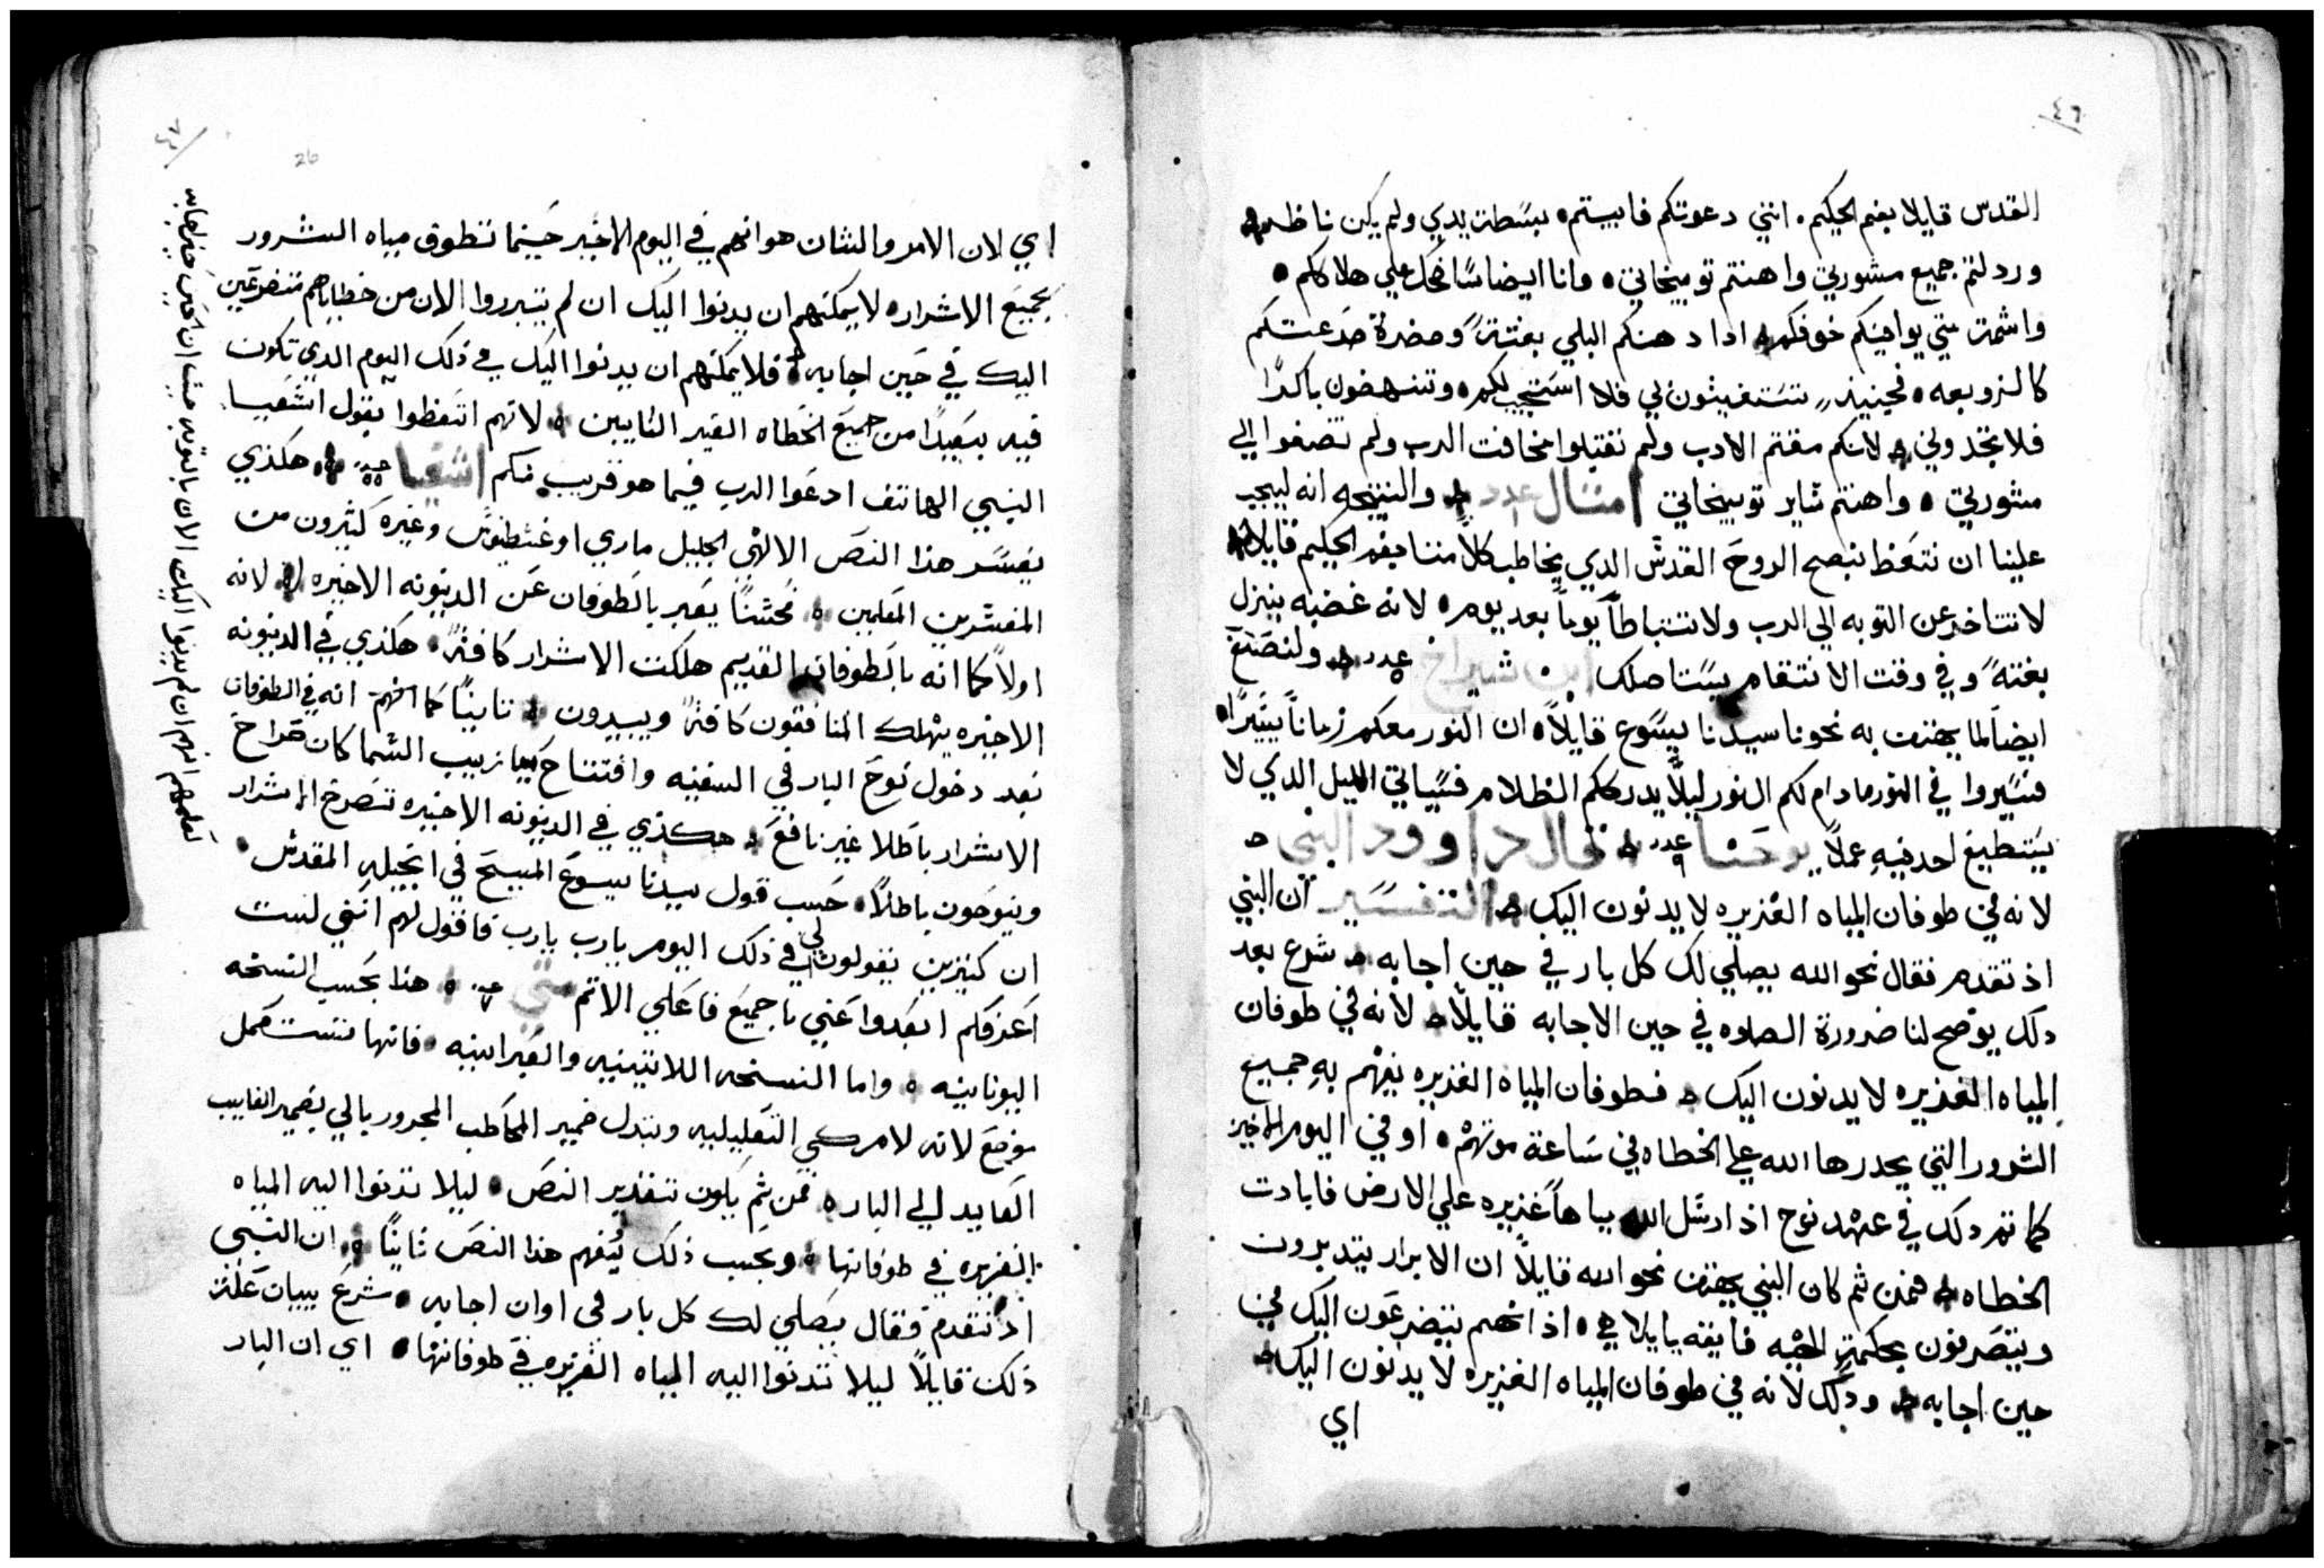 ٤٦
القدس قايلا بفم الحكيم. انني دعوتكم فابيتم. بسطت يدي ولم يكن ناظر
وردلتم جميع مشورتي واهنتم توبيخاتي. وانا ايضا ساضحك علي هلاككم.
واشمت متي يوافيكم خوفكم. ادا دهمكم البلي بغتتة ومضرة صدعتكم
كالزوبعه. فحينيذ تستغيثون بي فلا استجيب لكم. وتنهضون باكرا
فلا تجدوني. لانكم مقتم الادب ولم تقتبلوا مخافت الرب ولم تصغوا الي
مشورتي. واهنتم ساير توبيخاتي امتال عدد ١ والنتيجه انه ليجب
علينا ان نتعظ بنصح الروح القدس الدي يخاطب كلا مننا بفم الحكيم قايلا
لا تتاخر عن التوبه الي الرب ولا تتباطا يوما بعد يوم. لانه غضبه ينزل
بغتة وفي وقت الانتقام يستاصلك ابن شيراخ عدد ٥ ولنصنغ
ايضا لما يهتف به نحونا سيدنا يسوع قايلا ان النور معكم زمانا يسيرا
فسيروا في النور مادام لكم النور ليلا يدرككم الظلام فسياتي الليل الدي لا
يستطيع احد فيه عملا يوحنا عدد ٩ قال داوود النبي
لانه في طوفان المياه الغزيره لا يدنون اليك التفسير ان النبي
اذ تقدم فقال نحو الله يصلي لك كل بار في حين اجابه شرع بعد
دلك يوضح لنا ضرورة الصلوه في حين الاجابه قايلا لانه في طوفان
المياه الغذيره لا يدنون اليك فطوفان المياه الغزيره يفهم به جميع
الشرور التي يحدرها الله علي الخطاه في ساعة موتهم. او في اليوم الاخير
كما تم دلك في عهد نوح اذ ارسل الله مياها غزيره علي الارض فابادت
الخطاه فمن ثم كان النبي يهتف نحو الله قايلا ان الابرار يتدبرون
ويتصرفون بحكمة الهيه فايقه اذ انهم يتضرعون اليك في
حين اجابه ودلك لانه في طوفان المياه الغزيره لا يدنون اليك
اي
٤٧
26
اي لان الامر والشان هو انهم في اليوم الاخير حينما تطوف مياه الشرور
بجميع الاشرار لا يمكنهم ان يدنوا اليك ان لم يتبرروا الان من خطاياهم متضرعين
اليك في حين اجابه فلا يمكنهم ان يدنوا اليك في ذلك اليوم الدي تكون
فيه بعيدا من جميع الخطاه الغير التايبين لانهم اتعظوا بقول اشعيا
النبي الهاتف ادعوا الرب فيما هو قريب منكم اشعيا هكذي
يفسر هذا النص الالهي الجليل ماري اوغسطينوس وغيره كثيرون من
المفسرين المعلمين محسنا يعبر بالطوفان عن الدينونه الاخيره لانه
اولا كما انه بالطوفان القديم هلكت الاشرار كافة. هكذي في الدينونه
الاخيره يهلك المنافقون كافة ويبيدون ثانيا كما انه في الطوفان
بعد دخول نوح البار في السفينه وافتتاح ميازيب السما كان صراخ
الاشرار باطلا غير نافع هكذي في الدينونه الاخيره تصرخ الاشرار
وينوحون باطلا. حسب قول سيدنا يسوع المسيح في انجيله المقدس.
ان كثيرين يقولون لي في ذلك اليوم يارب يارب فاقول لهم انني لست
اعرفكم ابعدوا عني يا جميع فاعلي الاتم متي عد ٧ هذا بحسب النسخه
اليونانيه. واما النسخه اللاتينيه والعبرانيه. فانها تثبت محل
موضع لانه لام كي التعليليه وتبدل ضمير المخاطب المجرور بالي بضمير الغايب
العايد الي البار فمن ثم يكون تقدير النص. ليلا تدنوا اليه المياه
الغزيره في طوفانها وبحسب ذلك يفهم هذا النص ثانيا ان النبي
اذ تقدم فقال يصلي لك كل بار في اوان اجابه. شرع ببيان علة
ذلك قايلا ليلا تدنوا اليه المياه الغزيره في طوفانها. اي ان البار